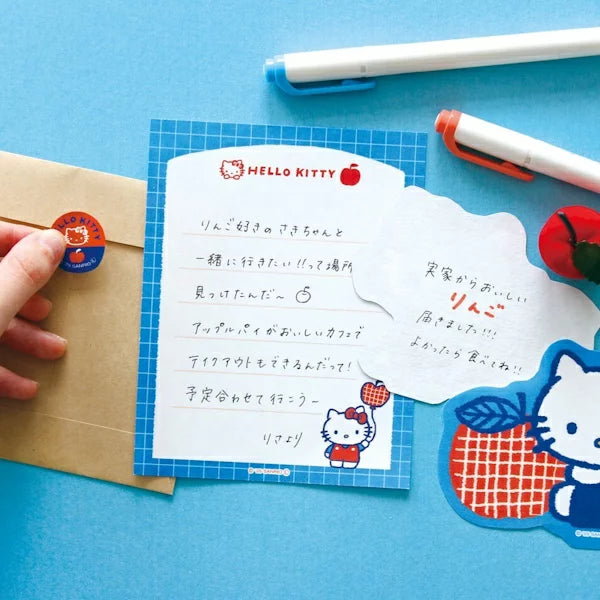 HELLO KITTY
りんご好きのさきちゃんと
一緒に行きたい!!って場所
見っけたんだ〜
アップルパイがおいしいカフェで
テイクアウトもできるんだって!
予定合わせて行こう〜
りさより
©'25 SANRIO Ⓛ
実家からおいしい
りんご
届きました!!!
よかったら食べてね!!
HELLO KITTY
SANRIO